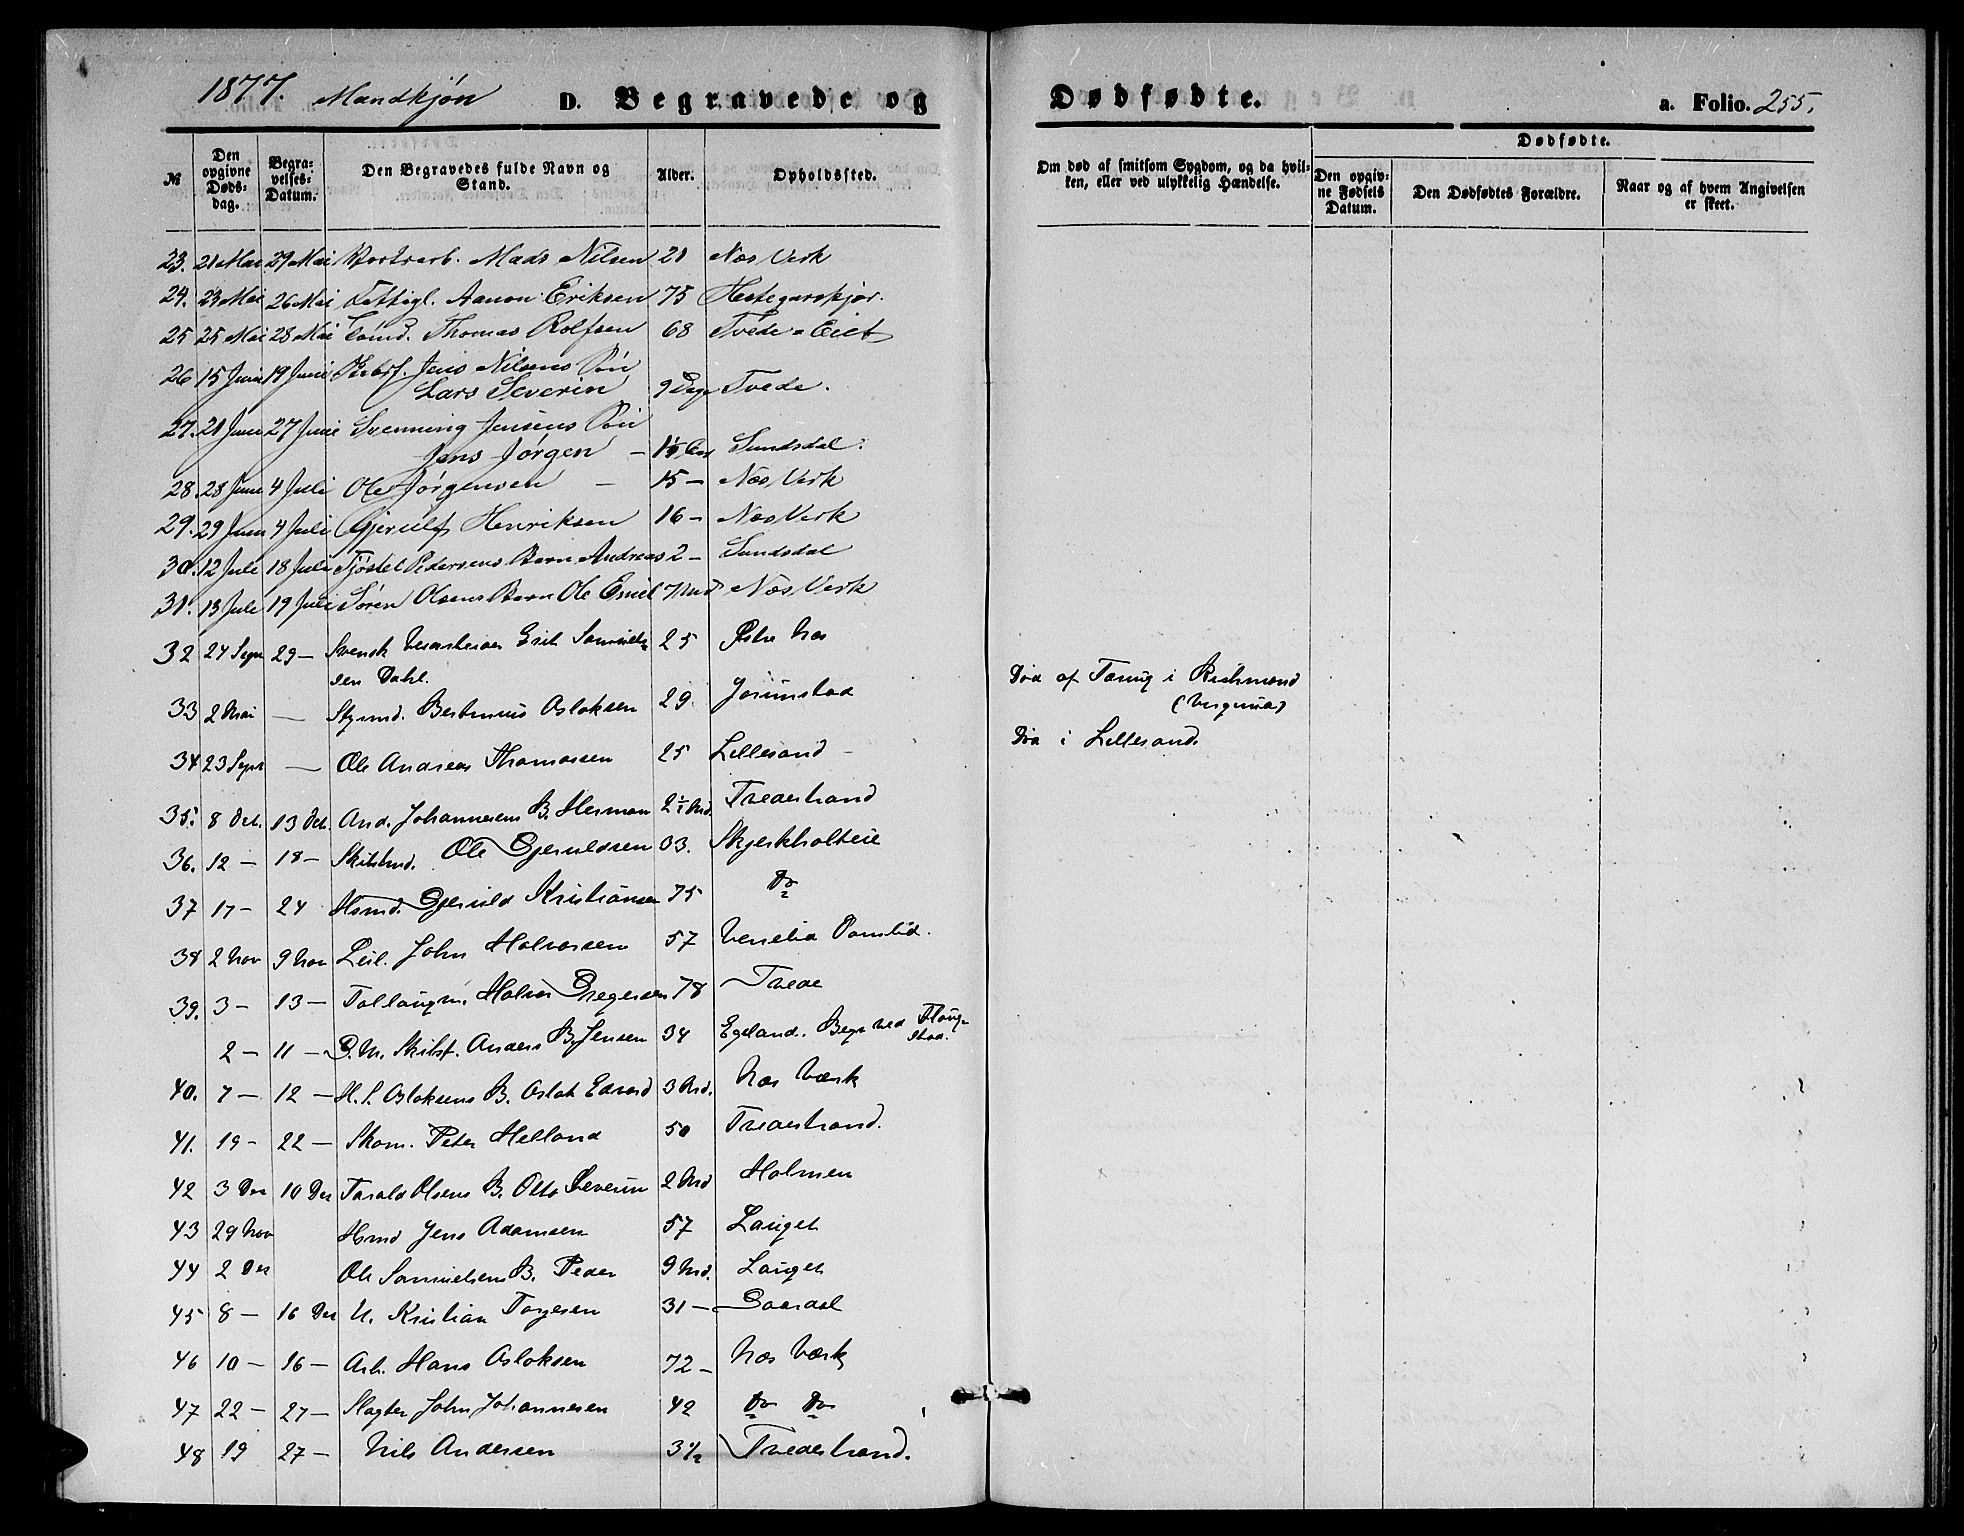 1877. Mandkjøn D. Begravede og Dødfødte. a. Folio. 255.
№ | Den opgivne Døds-dag. | Begra-velses-Datum. | Den Begravedes fulde Navn og Stand. | Alder. | Opholdssted. | Om død af smitsom Sygdom, og da hvil-ken, eller ved ulykkelig Hændelse. | Dødfødte. | Den opgiv-ne Fødsels Datum. | Den Dødfødtes Forældre. | Naar og af hvem Angivelsen er skeet.
23. 21 Mai 29 Mai Mads Nilsen 21 Næs Verk
24. 23 Mai 26 Mai Fattigl. Aanon Eriksen 75
25 25 Mai 28 Mai Thomas Rolfsen 68 Tvede-Eiet
26 15 Juni 19 Juni Jens Nilsens Søn
Lars Severin 9 Dage Tvede.
27. 21 Juni 27 Juni Svenning Jensens Søn
Jens Jørgen – Sundsdal.
28. 28 Juni 4 Juli Ole Jørgensen – 15 – Næs Verk
29. 29 Juni 4 Juli Gjerulf Henriksen 16 – Næs Verk
30. 12 Juli 18 Juli Tjöstel Pedersens Barn Andreas 2 – Sundsdal
31. 13 Juli 19 Juli Søren Olsens Barn Ole Emil 7 Md Næs Verk
32 24 Sept 29 – Svensk Erik Samuels-
sen Dahl. 25 Østre Næs
33 2 Mai — Styrmd. Bertinius Osloksen 29. Jorunstad Død af Tæring i Richmond
(Virginia)
34 23 Sept — Ole Andreas Thomassen 25 Lillesand – Død i Lillesand.
35. 8 Oct. 13 Oct. And. Johannesens B. Herman 2½ Md. Tvedestrand
36. 12 – 18 – Skibstmd. Ole Gjeruldsen 33. Skjerkholteie
37 17 – 24 Hsmd. Gjeruld Kristiansen 75 Do
38 2 Nov 9 Nov Leil. John Halvorsen 57 Venelia
39. 3 – 13 – Halvor Gregersen 78 Tvede
2 – 11 – Skibst. Anders B. Jensen 34 Egeland. Begr. ved Flaug-
stad.
40. 7 – 12 – H. P. Osloksens B. Oslak Edvard 3 Md. Næs Værk
41. 19 – 22 – Skom. Peter Helland 50 Tvedestrand.
42 3 Des 10 Des Tarald Olsens B. Otto Severin 2 Md Holmen
43 29 Nov Hsmd Jens Adamsen 57 Lauget
44 2 Des Ole Samuelsens B. Peder 9 Md. Lauget
45 8 – 16 Des U. Kristian Torjesen 31 – Goardal
46 10 – 16 – Arb. Hans Osloksen 72 – Næs Værk
47 22 – 27 – Slagter John Johannesen 42 Do Do
48 19 27 – Nils Andersen 3½ Tvedestrand.